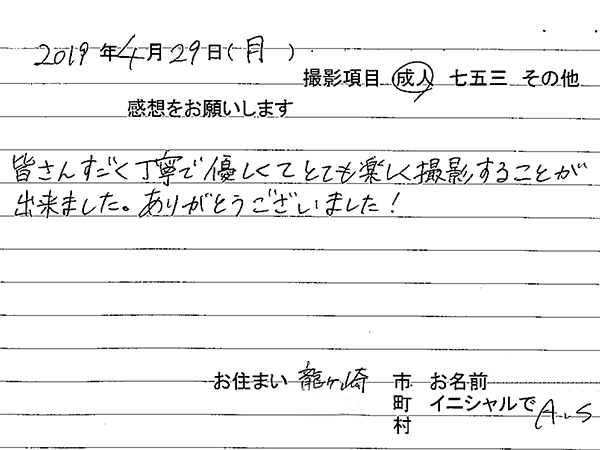 2019年4月29日(月)
撮影項目 成人 七五三 その他
感想をお願いします
皆さんすごく丁寧で優しくてとても楽しく撮影することが
出来ました。ありがとうございました!
お住まい 龍ヶ崎 市 お名前
町 イニシャルで A.S
村